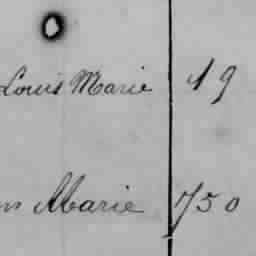 Louis Marie 19
Marie 750